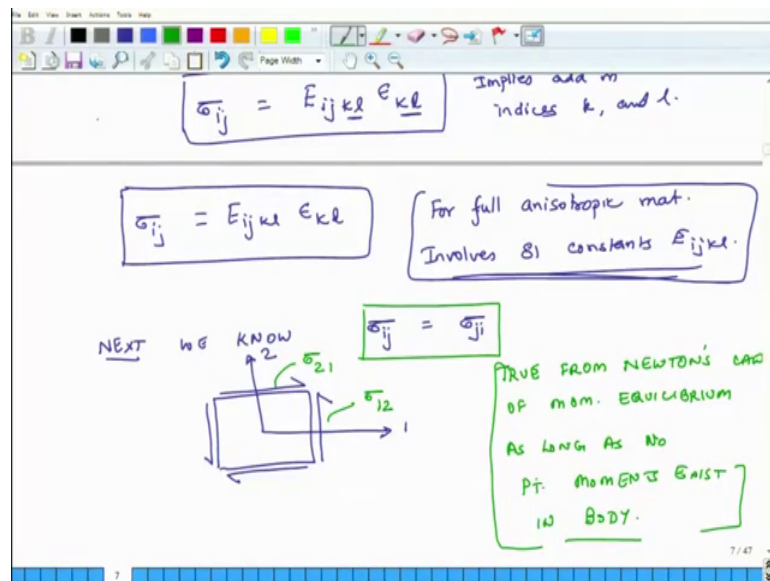 File Edit View Insert Actions Tools Help
B I
Page Width
σij = Eijkl εkl
Implies add in
indices k, and l.
σij = Eijkl εkl
For full anisotropic mat.
Involves 81 constants Eijkl.
σij = σji
NEXT WE KNOW
2
σ21
σ12
1
TRUE FROM NEWTON'S
OF MOM. EQUILIBRIUM
AS LONG AS NO
PT. MOMENTS EXIST
IN BODY.
7 / 47
7